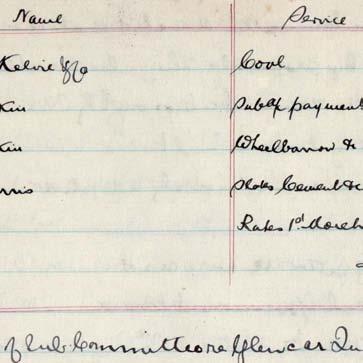 Name Service
Kelvie & Co Coal
kin payment
kin Wheelbarrow &c
rris Slates Cement &c
Rates 1st March
of Sub Committee re Glencar